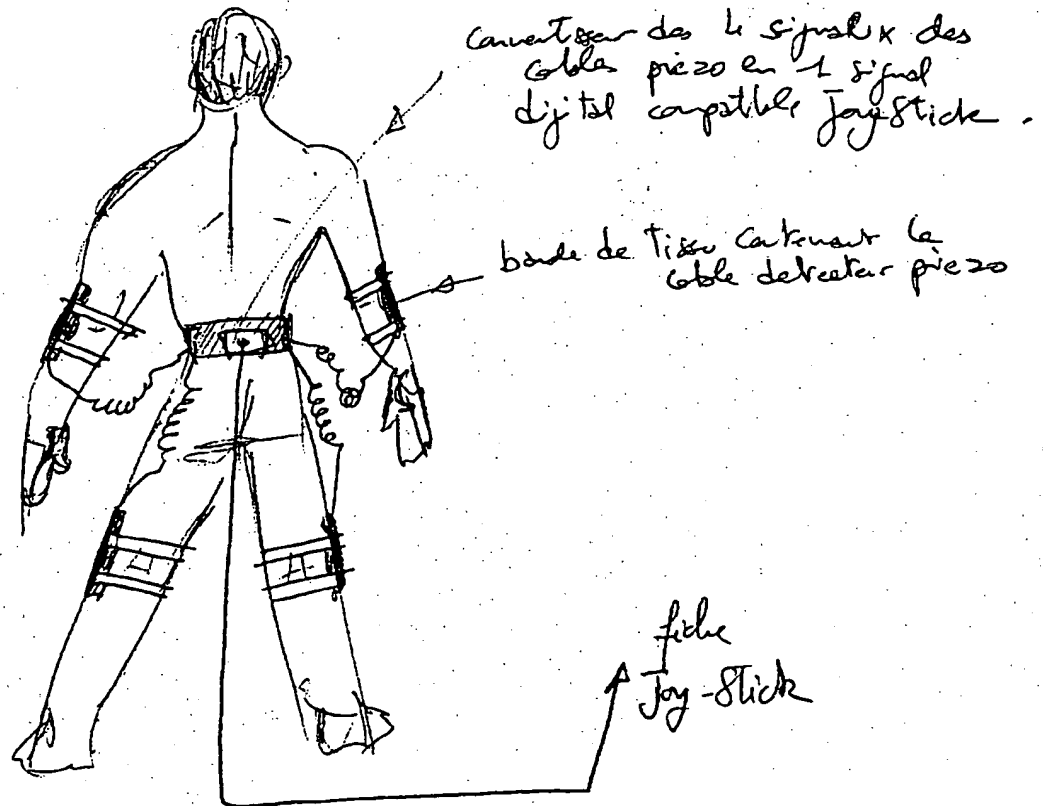 convertisseur des 4 signaux des
cables piezo en 1 signal
digital compatible Joy-Stick.
bande de tissu contenant le
cable detecteur piezo
fiche
Joy-Stick